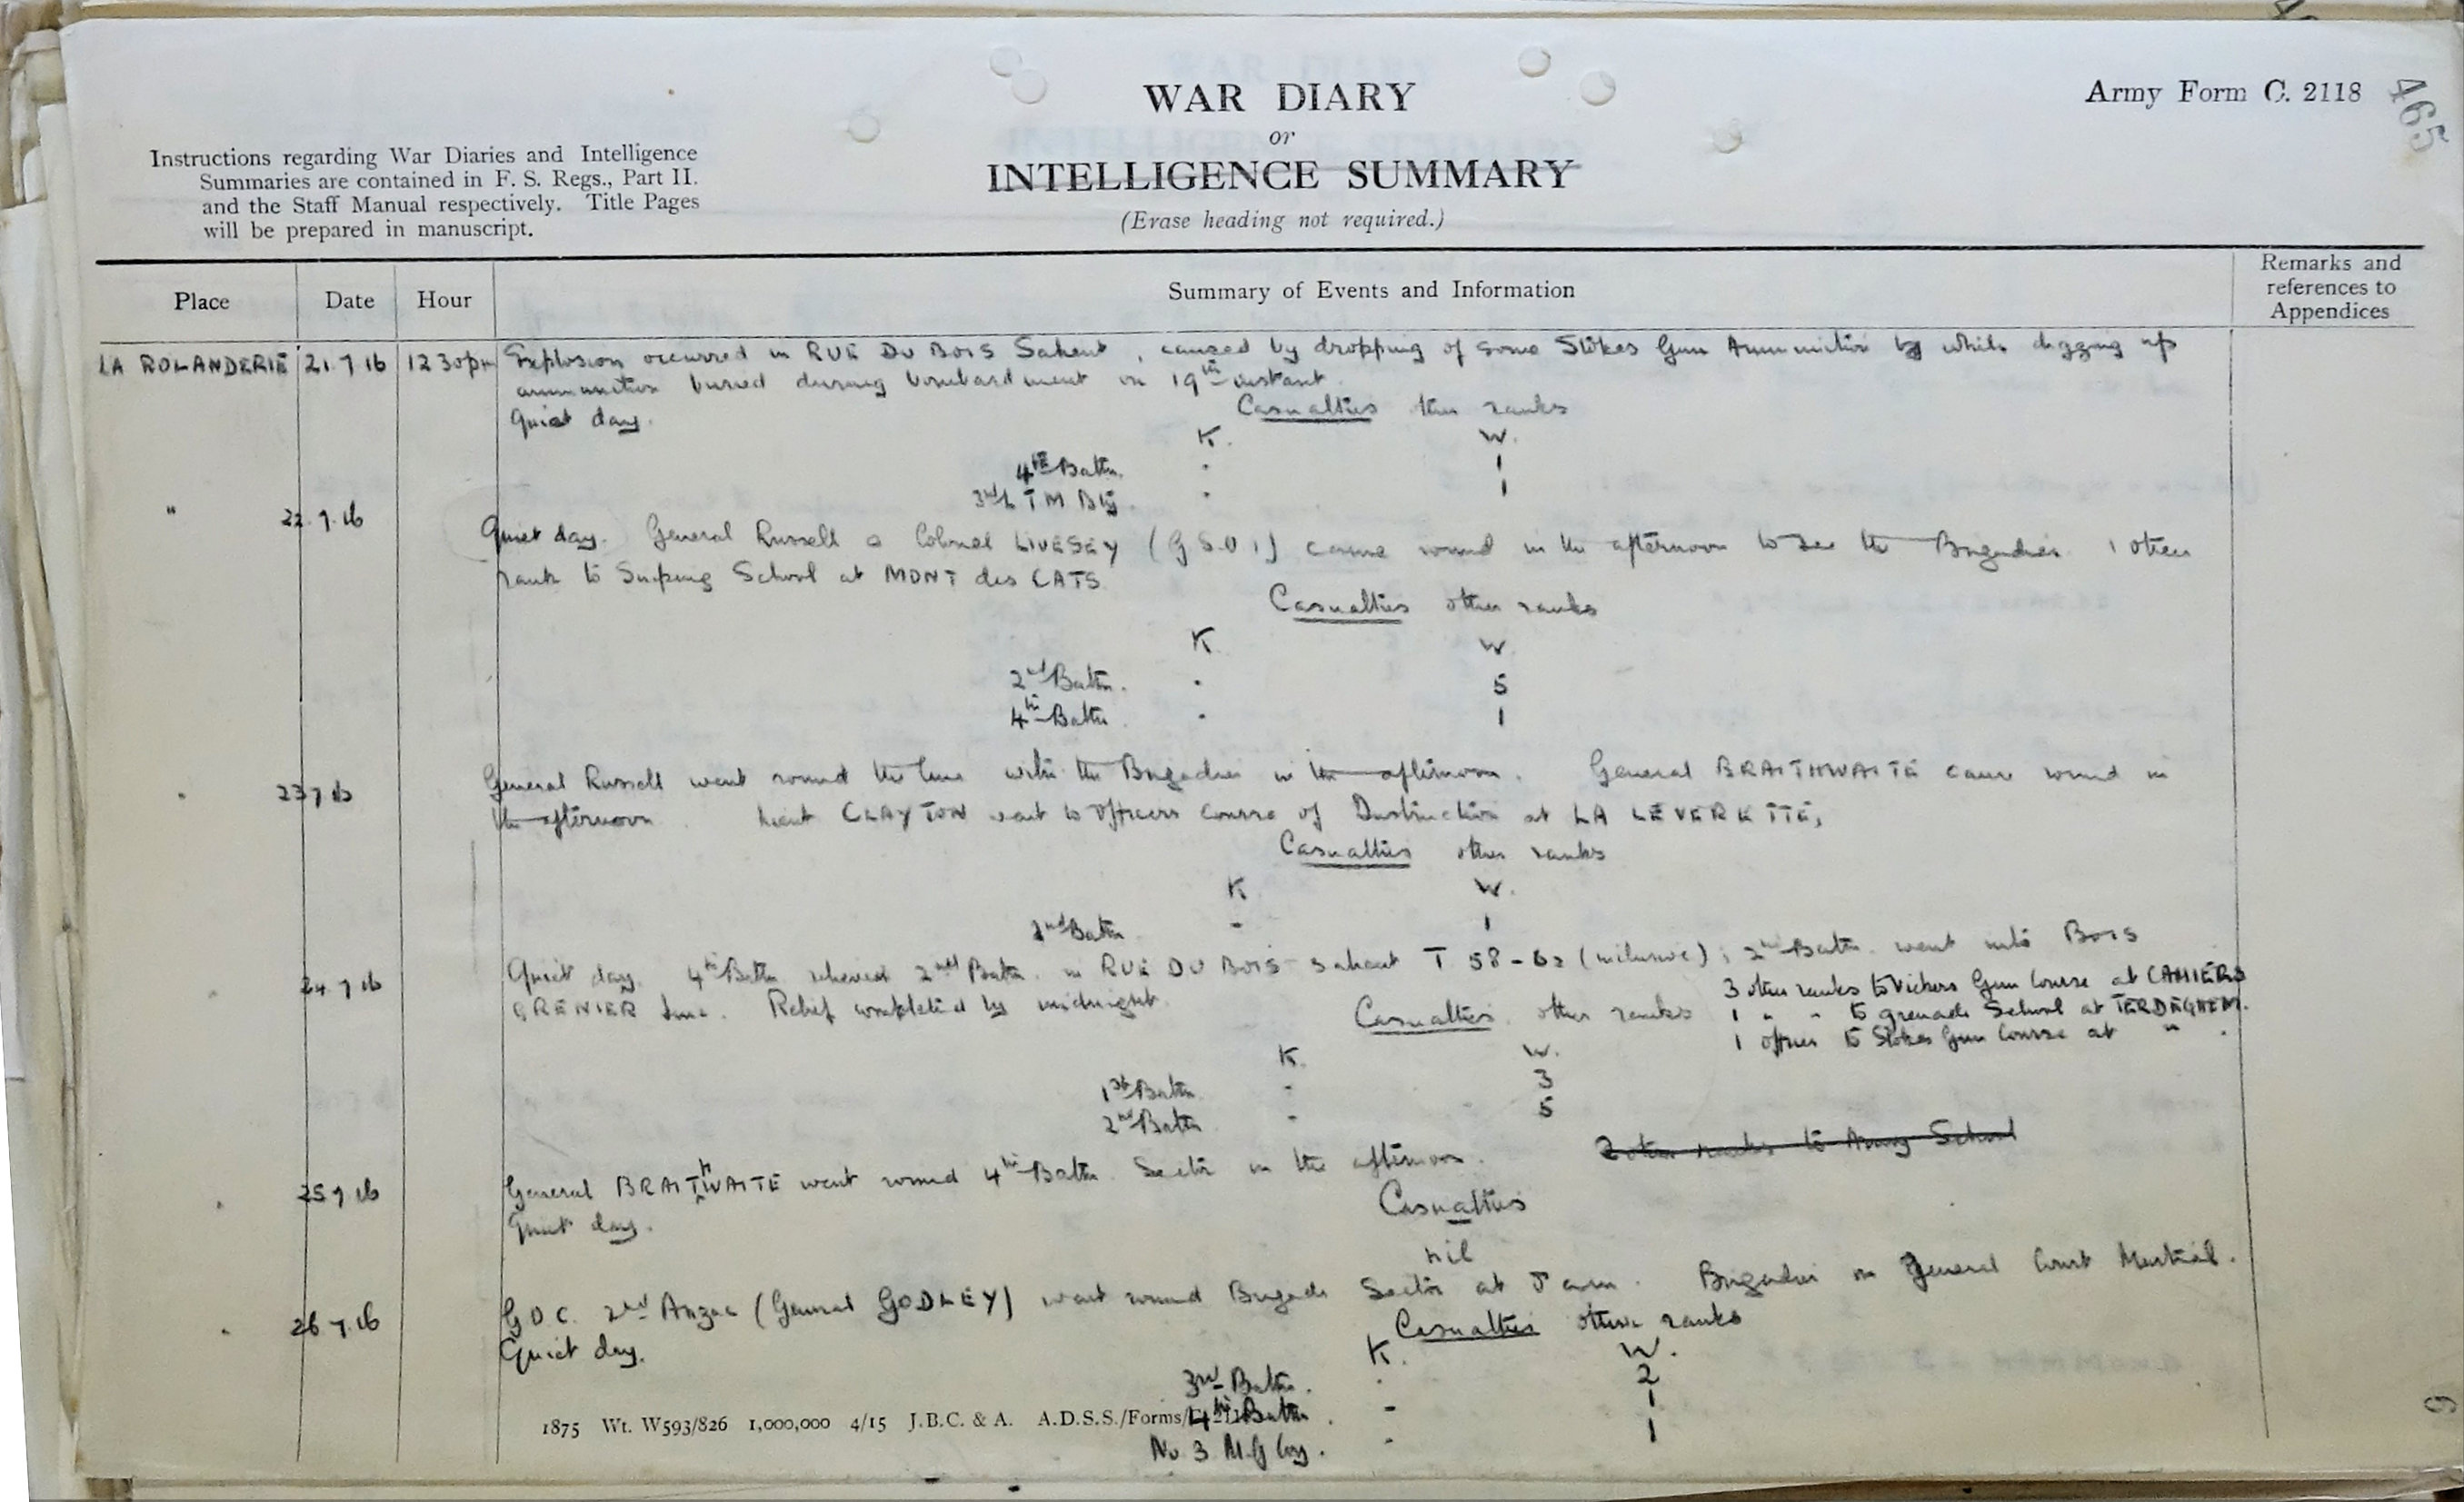 WAR DIARY
or
INTELLIGENCE SUMMARY
(Erase heading not required.)
Army Form C. 2118
465
Instructions regarding War Diaries and Intelligence
Summaries are contained in F. S. Regs., Part II.
and the Staff Manual respectively. Title Pages
will be prepared in manuscript.
Place Date Hour Summary of Events and Information Remarks and
references to
Appendices
LA ROLANDERIE 21.7.16 12 30pm Explosion occurred in RUE DU BOIS Salient, caused by dropping of some Stokes Gun Ammunition by while digging up
ammunition buried during bombardment on 19th instant.
Quiet day. Casualties other ranks
K. W.
4th Battn. - 1
3rd L T M Bty. - 1
" 22.7.16 Quiet day. General Russell & Colonel LIVESEY (G S.O 1) came round in the afternoon to see the Brigadier. 1 other
rank to Sniping School at MONT des CATS.
Casualties other ranks
K W
2nd Battn. - 5
4th Battn - 1
" 23 7 16 General Russell went round the line with the Brigadier in the afternoon. General BRAITHWAITE came round in
the afternoon. Lieut CLAYTON went to Officers Course of Instruction at LA LEVERETTE,
Casualties other ranks
K W.
2nd Battn - 1
" 24 7 16 Quiet day. 4th Battn relieved 2nd Battn. in RUE DU BOIS Salient T 58 - 62 (inclusive); 2nd Battn. went into BOIS
GRENIER Line. Relief completed by midnight.
3 other ranks to Vickers Gun Course at CAMIERS
Casualties other ranks 1 " " to Grenade School at TERDEGHEM.
1 officer to Stokes Gun Course at " .
K. W.
1st Battn - 3
2nd Battn - 5
2 other ranks to Army School
" 25 7 16 General BRAITHWAITE went round 4th Battn. Sector in the afternoon.
Quiet day. Casualties
nil
" 26 7 16 G.O.C. 2nd Anzac (General GODLEY) went round Brigade Sector at 5 am. Brigadier on General Court Martial.
Quiet day. Casualties other ranks
K. W.
3rd Battn. - 2
4th Battn. - 1
1875 Wt. W593/826 1,000,000 4/15 J.B.C. & A. A.D.S.S./Forms/
No 3 M.G Coy. - 1